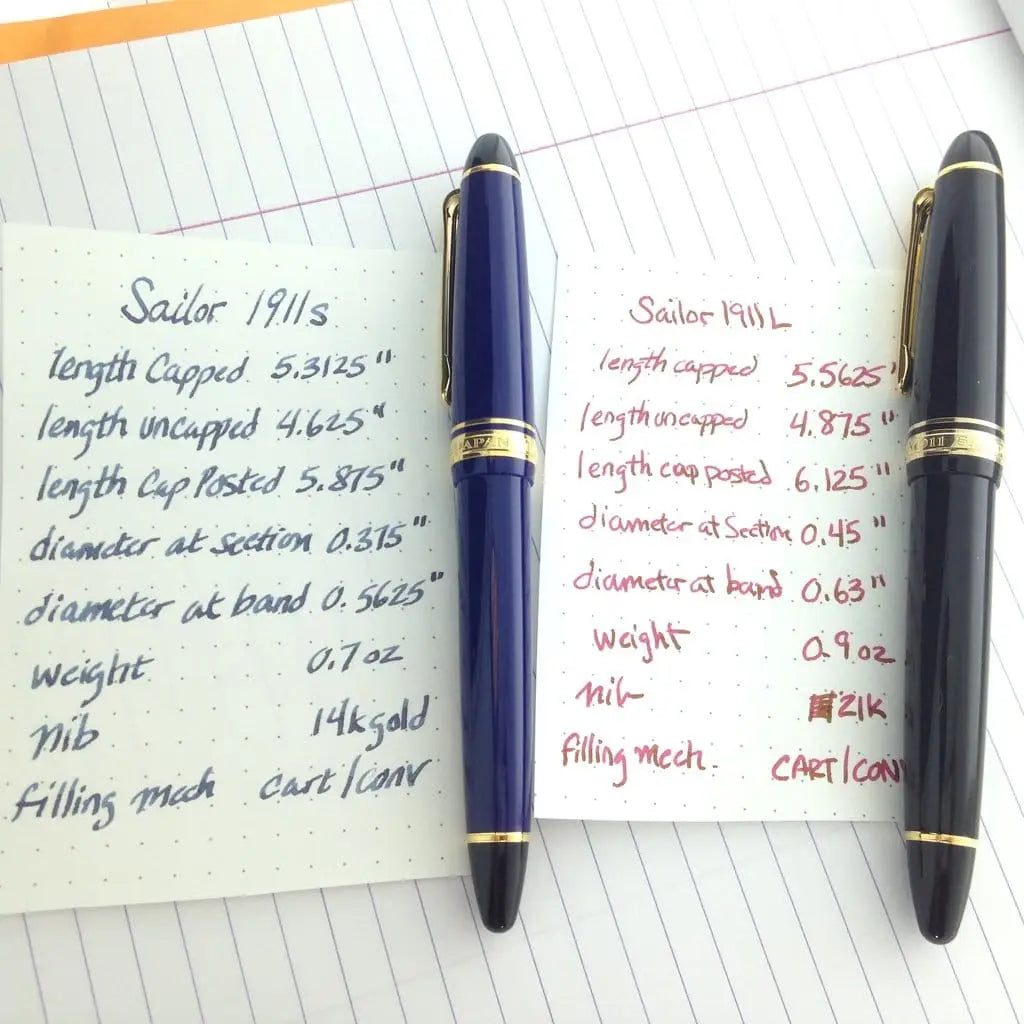 Sailor 1911s
length Capped 5.3125"
length uncapped 4.625"
length Cap Posted 5.875"
diameter at section 0.375"
diameter at band 0.5625"
weight 0.7 oz
nib 14k gold
filling mech cart/conv
JAPAN
Sailor 1911L
length capped 5.5625"
length uncapped 4.875"
length cap posted 6.125"
diameter at Section 0.45"
diameter at band 0.63"
weight 0.9 oz
nib 21k
filling mech. CART/CON